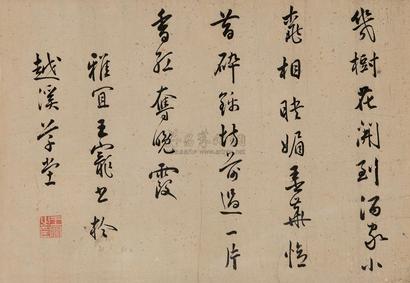 幾樹花開到酒家小
窓相映媚春華憶
昔碎錦坊前過一片
香紅奪晚霞
雅宜王寵書於
越溪草堂